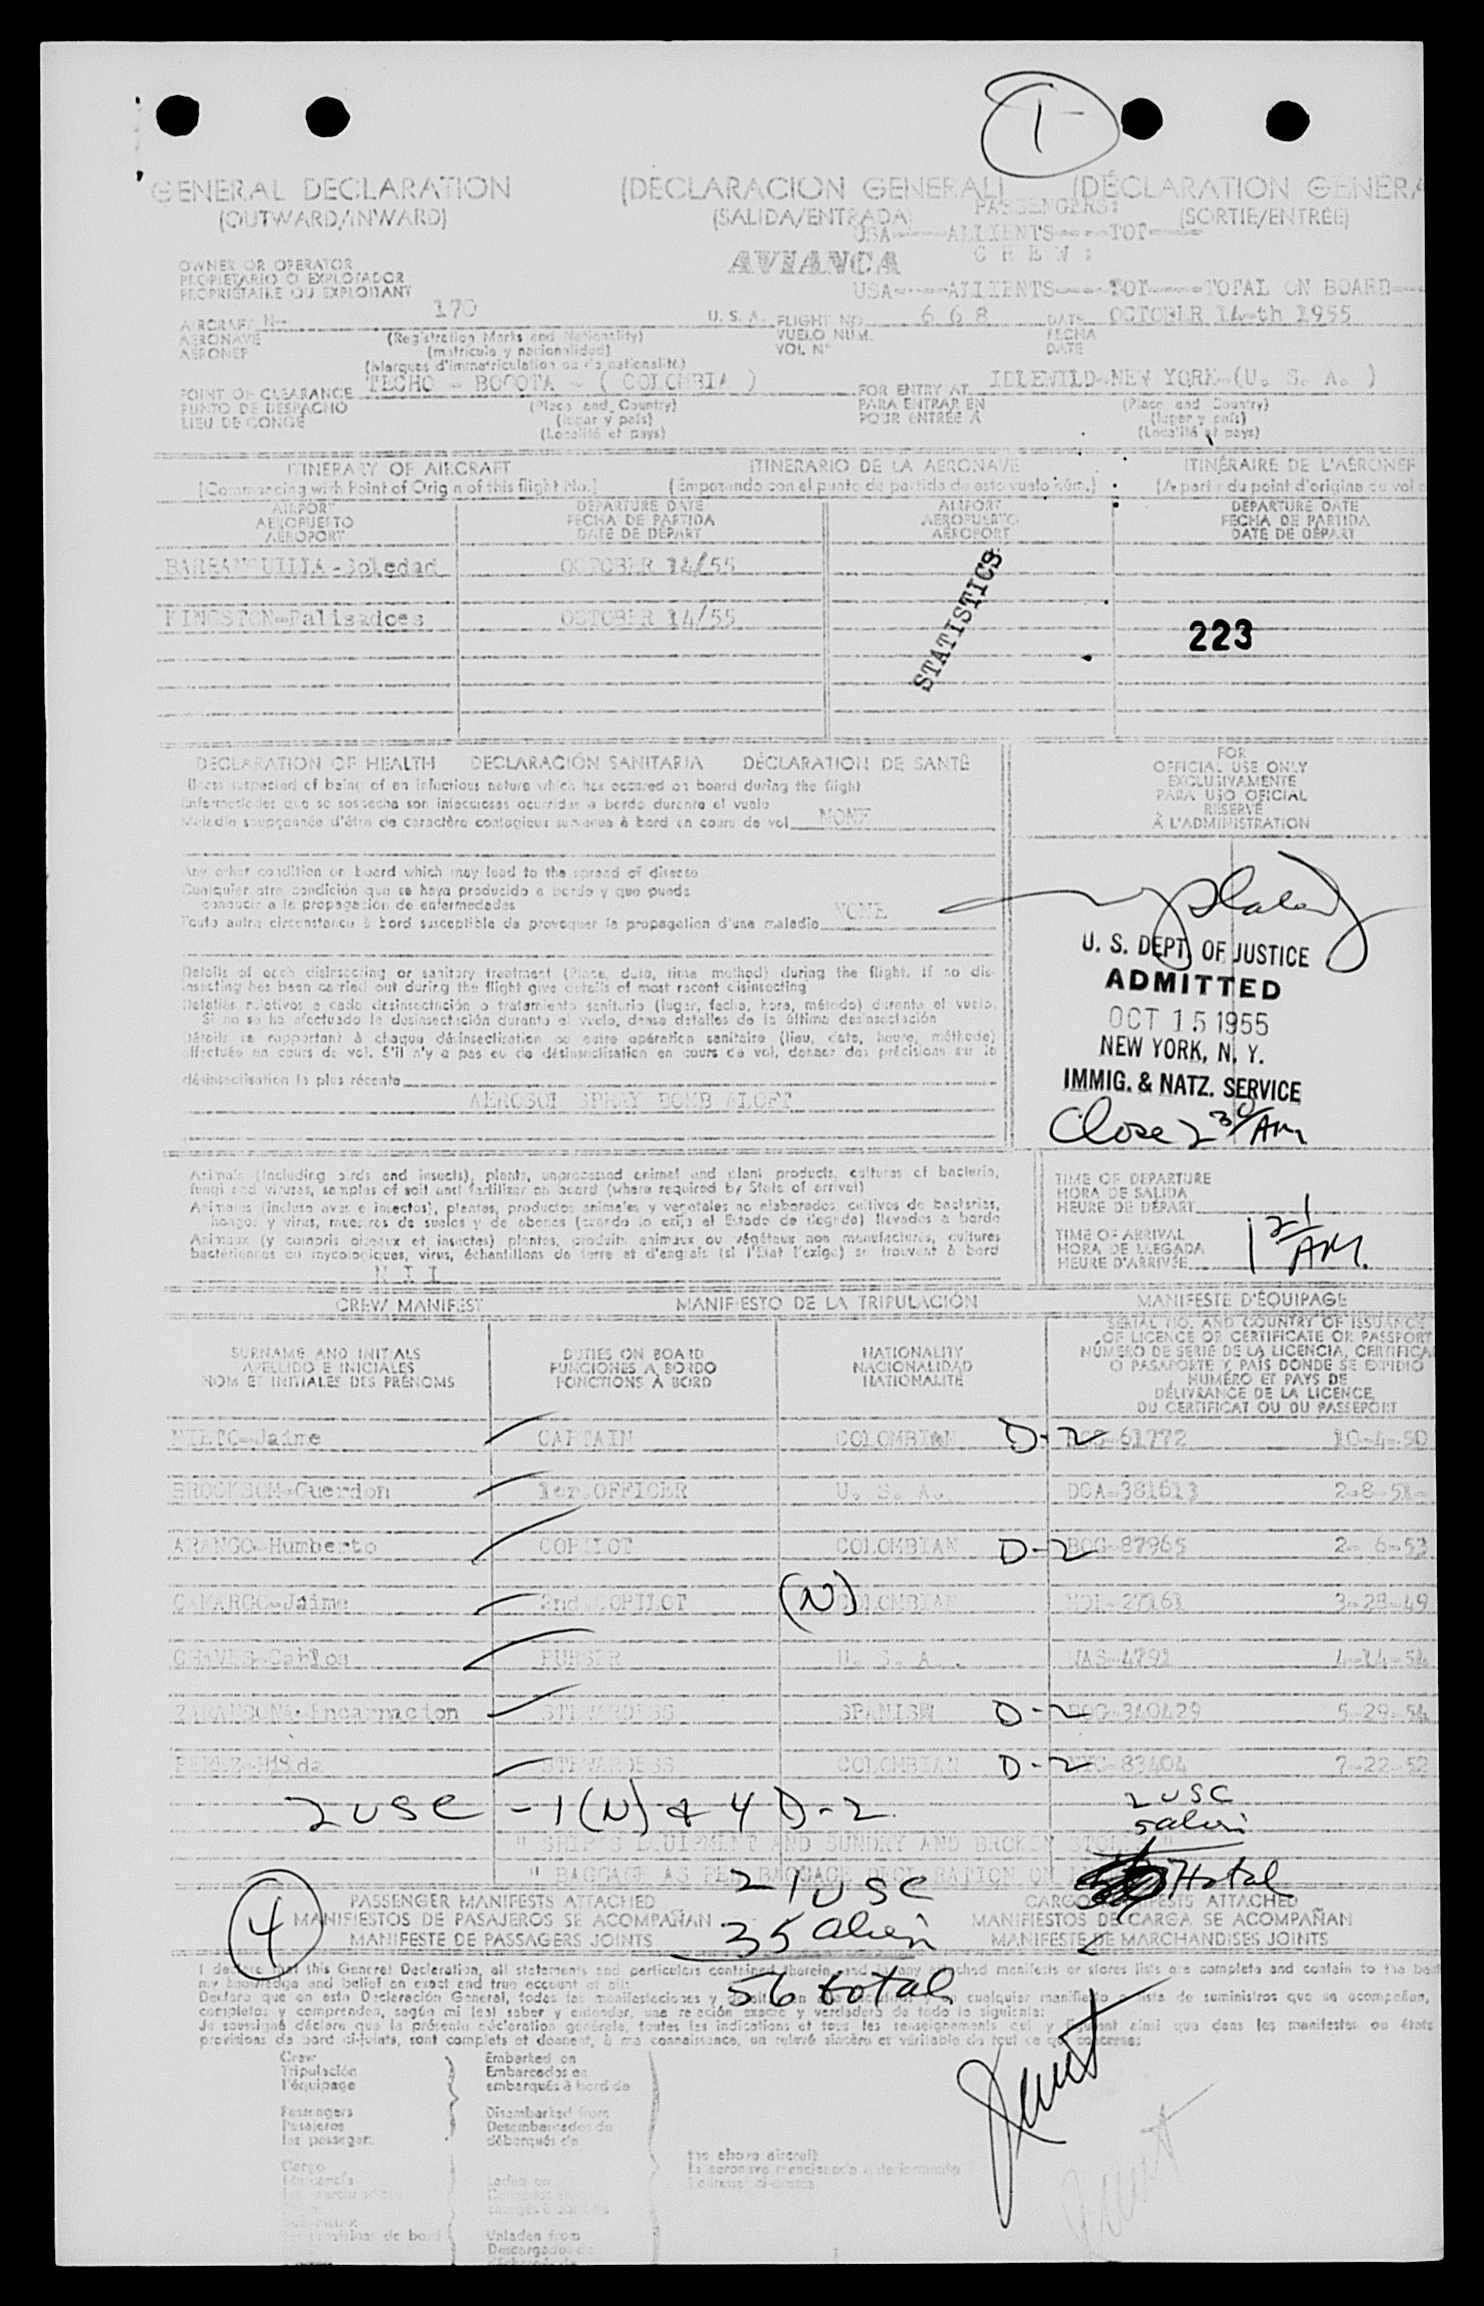 1
GENERAL DECLARATION (DECLARACION GENERAL) (DÉCLARATION GENERA
(OUTWARD/INWARD) (SALIDA/ENTRADA) (SORTIE/ENTRÉE)
PASSENGERS:
USA-----ALLIENTS-----TOT-----
AVIANCA C R E W :
OWNER OR OPERATOR
PROPIETARIO O EXPLOTADOR
PROPRIÉTAIRE OU EXPLOITANT
USA-----ALLIENTS-----TOT-----TOTAL ON BOARD---
AIRCRAFT N- 170 U. S. A. FLIGHT NO. 6 6 8 DATE OCTOBER 14-th 1955
AERONAVE (Registration Marks and Nationality) VUELO NUM. FECHA
AÉRONEF (matricula y nacionalidad) VOL Nº DATE
(Marques d'immatriculation ou de nationalité)
POINT OF CLEARANCE TECHO - BOGOTA - ( COLOMBIA ) FOR ENTRY AT IDLEWILD-NEW YORK-(U. S. A. )
PUNTO DE DESPACHO (Place and Country) PARA ENTRAR EN (Place and Country)
LIEU DE CONGÉ (lugar y país) POUR ENTRÉE À (lugar y país)
(Localité et pays) (Localité et pays)
ITINERARY OF AIRCRAFT ITINERARIO DE LA AERONAVE ITINÉRAIRE DE L'AÉRONEF
(Commencing with Point of Origin of this flight No.) (Empezando con el punto de partida de este vuelo núm.) (A partir du point d'origine du vol
AIRPORT DEPARTURE DATE AIRPORT DEPARTURE DATE
AEROPUERTO FECHA DE PARTIDA AEROPUERTO FECHA DE PARTIDA
AÉROPORT DATE DE DÉPART AÉROPORT DATE DE DÉPART
BARRANQUILLA-Soledad OCTOBER 14/55
KINGSTON-Palisadoes OCTOBER 14/55
STATISTICS
223
DECLARATION OF HEALTH DECLARACIÓN SANITARIA DÉCLARATION DE SANTÉ
Illness suspected of being of an infectious nature which has occured on board during the flight
Enfermedades que se sospecha son infecciosas ocurridas a bordo durante el vuelo
Maladie soupçonnée d'être de caractère contagieux survenue à bord en cours de vol NONE
FOR
OFFICIAL USE ONLY
EXCLUSIVAMENTE
PARA USO OFICIAL
RÉSERVÉ
À L'ADMINISTRATION
Any other condition on board which may lead to the spread of disease
Cualquier otra condición que se haya producido a bordo y que puede
conducir a la propagación de enfermedades
Toute autre circonstance à bord susceptible de provoquer la propagation d'une maladie NONE
Details of each disinsecting or sanitary treatment (Place, date, time method) during the flight. If no dis-
insecting has been carried out during the flight give details of most recent disinsecting
Detalles relativos a cada desinsectación o tratamiento sanitario (lugar, fecha, hora, método) durante el vuelo.
Si no se ha efectuado la desinsectación durante el vuelo, dense detalles de la última desinsectación
Détails se rapportant à chaque désinsectisation ou autre opération sanitaire (lieu, date, heure, méthode)
effectuée en cours de vol. S'il n'y a pas eu de désinsectisation en cours de vol, donner des précisions sur la
désinsectisation la plus récente
AEROSOL SPRAY BOMB ALOFT
U. S. DEPT. OF JUSTICE
ADMITTED
OCT 15 1955
NEW YORK, N. Y.
IMMIG. & NATZ. SERVICE
Close 2 30/AM
Animals (including birds and insects), plants, unprocessed animal and plant products, cultures of bacteria,
fungi and viruses, samples of soil and fertilizer on board (where required by State of arrival)
Animales (incluso aves e insectos), plantas, productos animales y vegetales no elaborados, cultivos de bacterias,
hongos y virus, muestras de suelos y de abonos (cuando lo exija el Estado de llegada) llevados a bordo
Animaux (y compris oiseaux et insectes) plantes, produits animaux ou végétaux non manufacturés, cultures
bactériennes ou mycologiques, virus, échantillons de terre et d'engrais (si l'État l'exige) se trouvant à bord
N I L
TIME OF DEPARTURE
HORA DE SALIDA
HEURE DE DÉPART
TIME OF ARRIVAL
HORA DE LLEGADA
HEURE D'ARRIVÉE
1 21 AM.
CREW MANIFEST MANIFIESTO DE LA TRIPULACIÓN MANIFESTE D'ÉQUIPAGE
SURNAME AND INITIALS
APELLIDO E INICIALES
NOM ET INITIALES DES PRÉNOMS
DUTIES ON BOARD
FUNCIONES A BORDO
FONCTIONS À BORD
NATIONALITY
NACIONALIDAD
NATIONALITÉ
SERIAL NO. AND COUNTRY OF ISSUANCE
OF LICENCE OR CERTIFICATE OR PASSPORT
NÚMERO DE SERIE DE LA LICENCIA, CERTIFICA
O PASAPORTE Y PAÍS DONDE SE EXPIDIÓ
NUMÉRO ET PAYS DE
DÉLIVRANCE DE LA LICENCE,
DU CERTIFICAT OU DU PASSEPORT
NIETO-Jaime CAPTAIN COLOMBIAN D-2 BOG-61772 10-4-50
BROOKSOM-Guerdon 1er.OFFICER U. S. A. DCA-381613 2-8-51-
ARANGO-Humberto COPILOT COLOMBIAN D-2 BOG-87965 2- 6-53
CAMARGO-Jaime 2nd.COPILOT (N) COLOMBIAN 27161 3-28-49
CHAVES-Carlos PURSER U. S. A. WAS-4791 4-14-54
ZARANDONA-Encarnacion STEWARDESS SPANISH D-2 BOG-340429 5-29-54
PEREZ-Hilda STEWARDESS COLOMBIAN D-2 83404 7-22-52
2 USC - 1(N) & 4 D-2.
2 USC
5 alien
7 total
" SHIP'S EQUIPMENT AND SUNDRY AND BROKEN STORES "
" BAGGAGE AS PER BAGGAGE DECLARATION ON
4
PASSENGER MANIFESTS ATTACHED CARGO MANIFESTS ATTACHED
MANIFIESTOS DE PASAJEROS SE ACOMPAÑAN MANIFIESTOS DE CARGA SE ACOMPAÑAN
MANIFESTE DE PASSAGERS JOINTS MANIFESTE DE MARCHANDISES JOINTS
21 USC
35 alien
56 total
I declare that this General Declaration, all statements and particulars contained therein and in any attached manifests or stores lists are complete and contain to the best
my knowledge and belief an exact and true account of all:
Crew
Tripulación
l'équipage
Embarked on
Embarcados en
embarqués à bord de
Passengers
Pasajeros
les passagers
Disembarked from
Desembarcados de
débarqués de
the above aircraft
Cargo
Unladen from
Descargados de